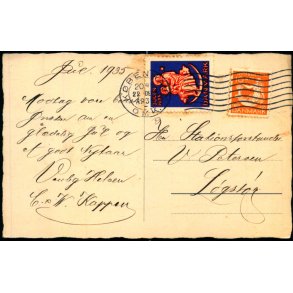 Jul 1935
Modtag vore
Ønsker om en
glædelig Jul og
et godt Nytaar.
Venlig Hilsen
C. W. Kappen
KØBENHAVN
DANMARK
Hr. Stationsforstander
V. Petersen
Løgstør